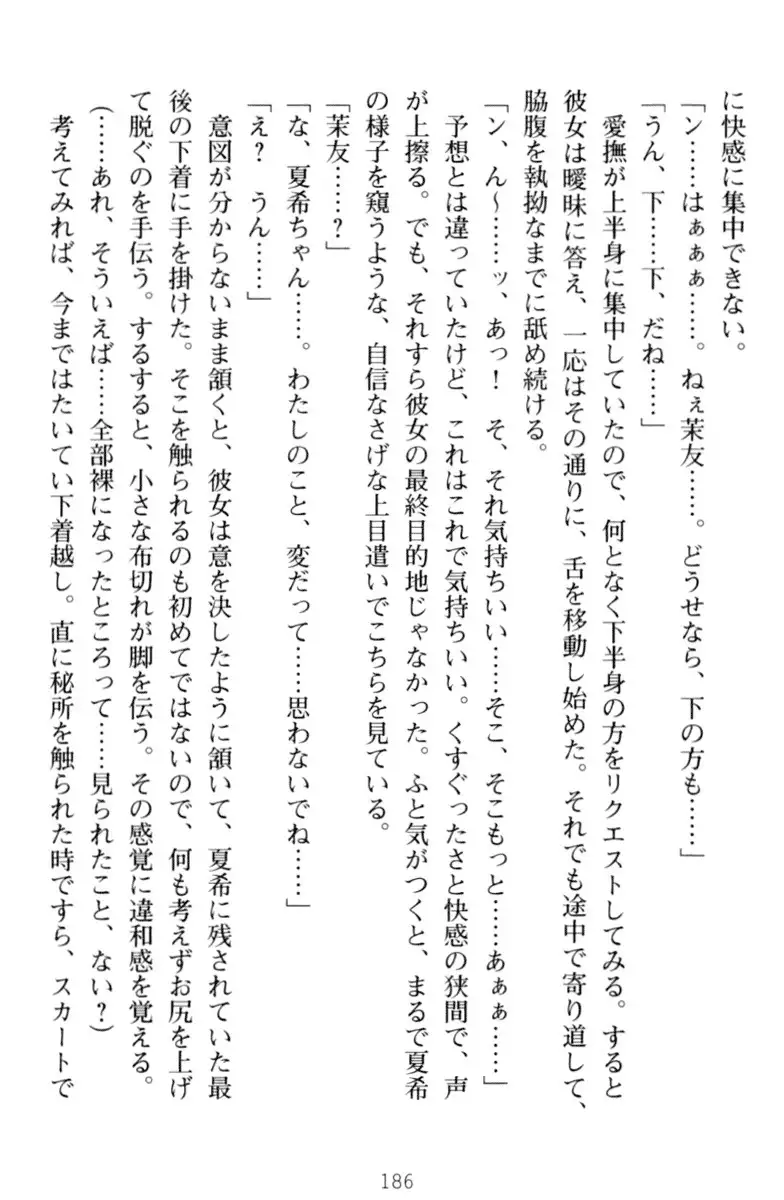 に快感に集中できない。
「ン……はぁぁぁ……。ねぇ茉友……。どうせなら、下の方も……」
「うん、下……下、だね……」
愛撫が上半身に集中していたので、何となく下半身の方をリクエストしてみる。すると
彼女は曖昧に答え、一応はその通りに、舌を移動し始めた。それでも途中で寄り道して、
脇腹を執拗なまでに舐め続ける。
「ン、ん〜……ッ、あっ！　そ、それ気持ちいい……そこ、そこもっと……あぁぁ……」
予想とは違っていたけど、これはこれで気持ちいい。くすぐったさと快感の狭間で、声
が上擦る。でも、それすら彼女の最終目的地じゃなかった。ふと気がつくと、まるで夏希
の様子を窺うような、自信なさげな上目遣いでこちらを見ている。
「茉友……？」
「な、夏希ちゃん……。わたしのこと、変だって……思わないでね……」
「え？　うん……」
意図が分からないまま頷くと、彼女は意を決したように頷いて、夏希に残されていた最
後の下着に手を掛けた。そこを触られるのも初めてではないので、何も考えずお尻を上げ
て脱ぐのを手伝う。するすると、小さな布切れが脚を伝う。その感覚に違和感を覚える。
（……あれ、そういえば……全部裸になったところって……見られたこと、ない？）
考えてみれば、今まではたいてい下着越し。直に秘所を触られた時ですら、スカートで
186